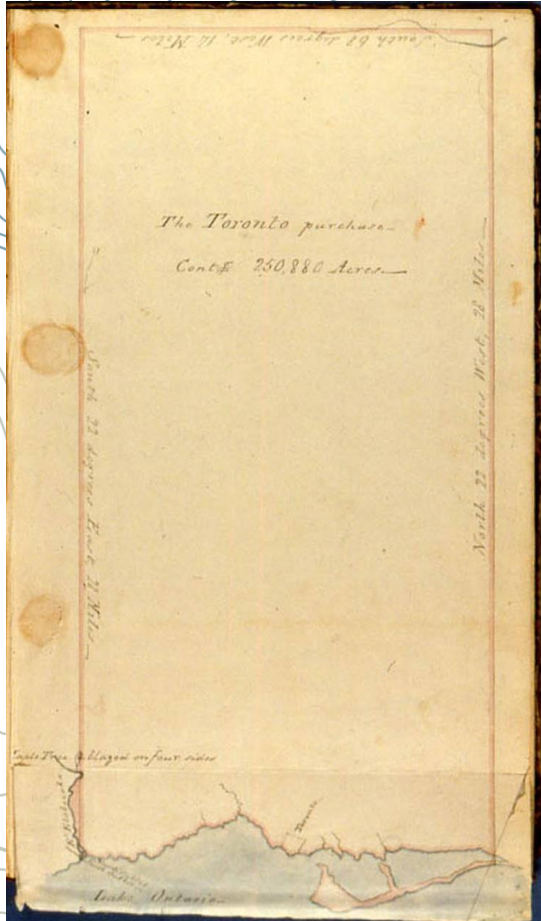 South 68 degrees West, 14 Miles
The Toronto purchase
Contg. 250,880 Acres
North 22 degrees West, 28 Miles
South 22 degrees East, Miles
Maple Tree blazed on four sides
Toronto
Lake Ontario